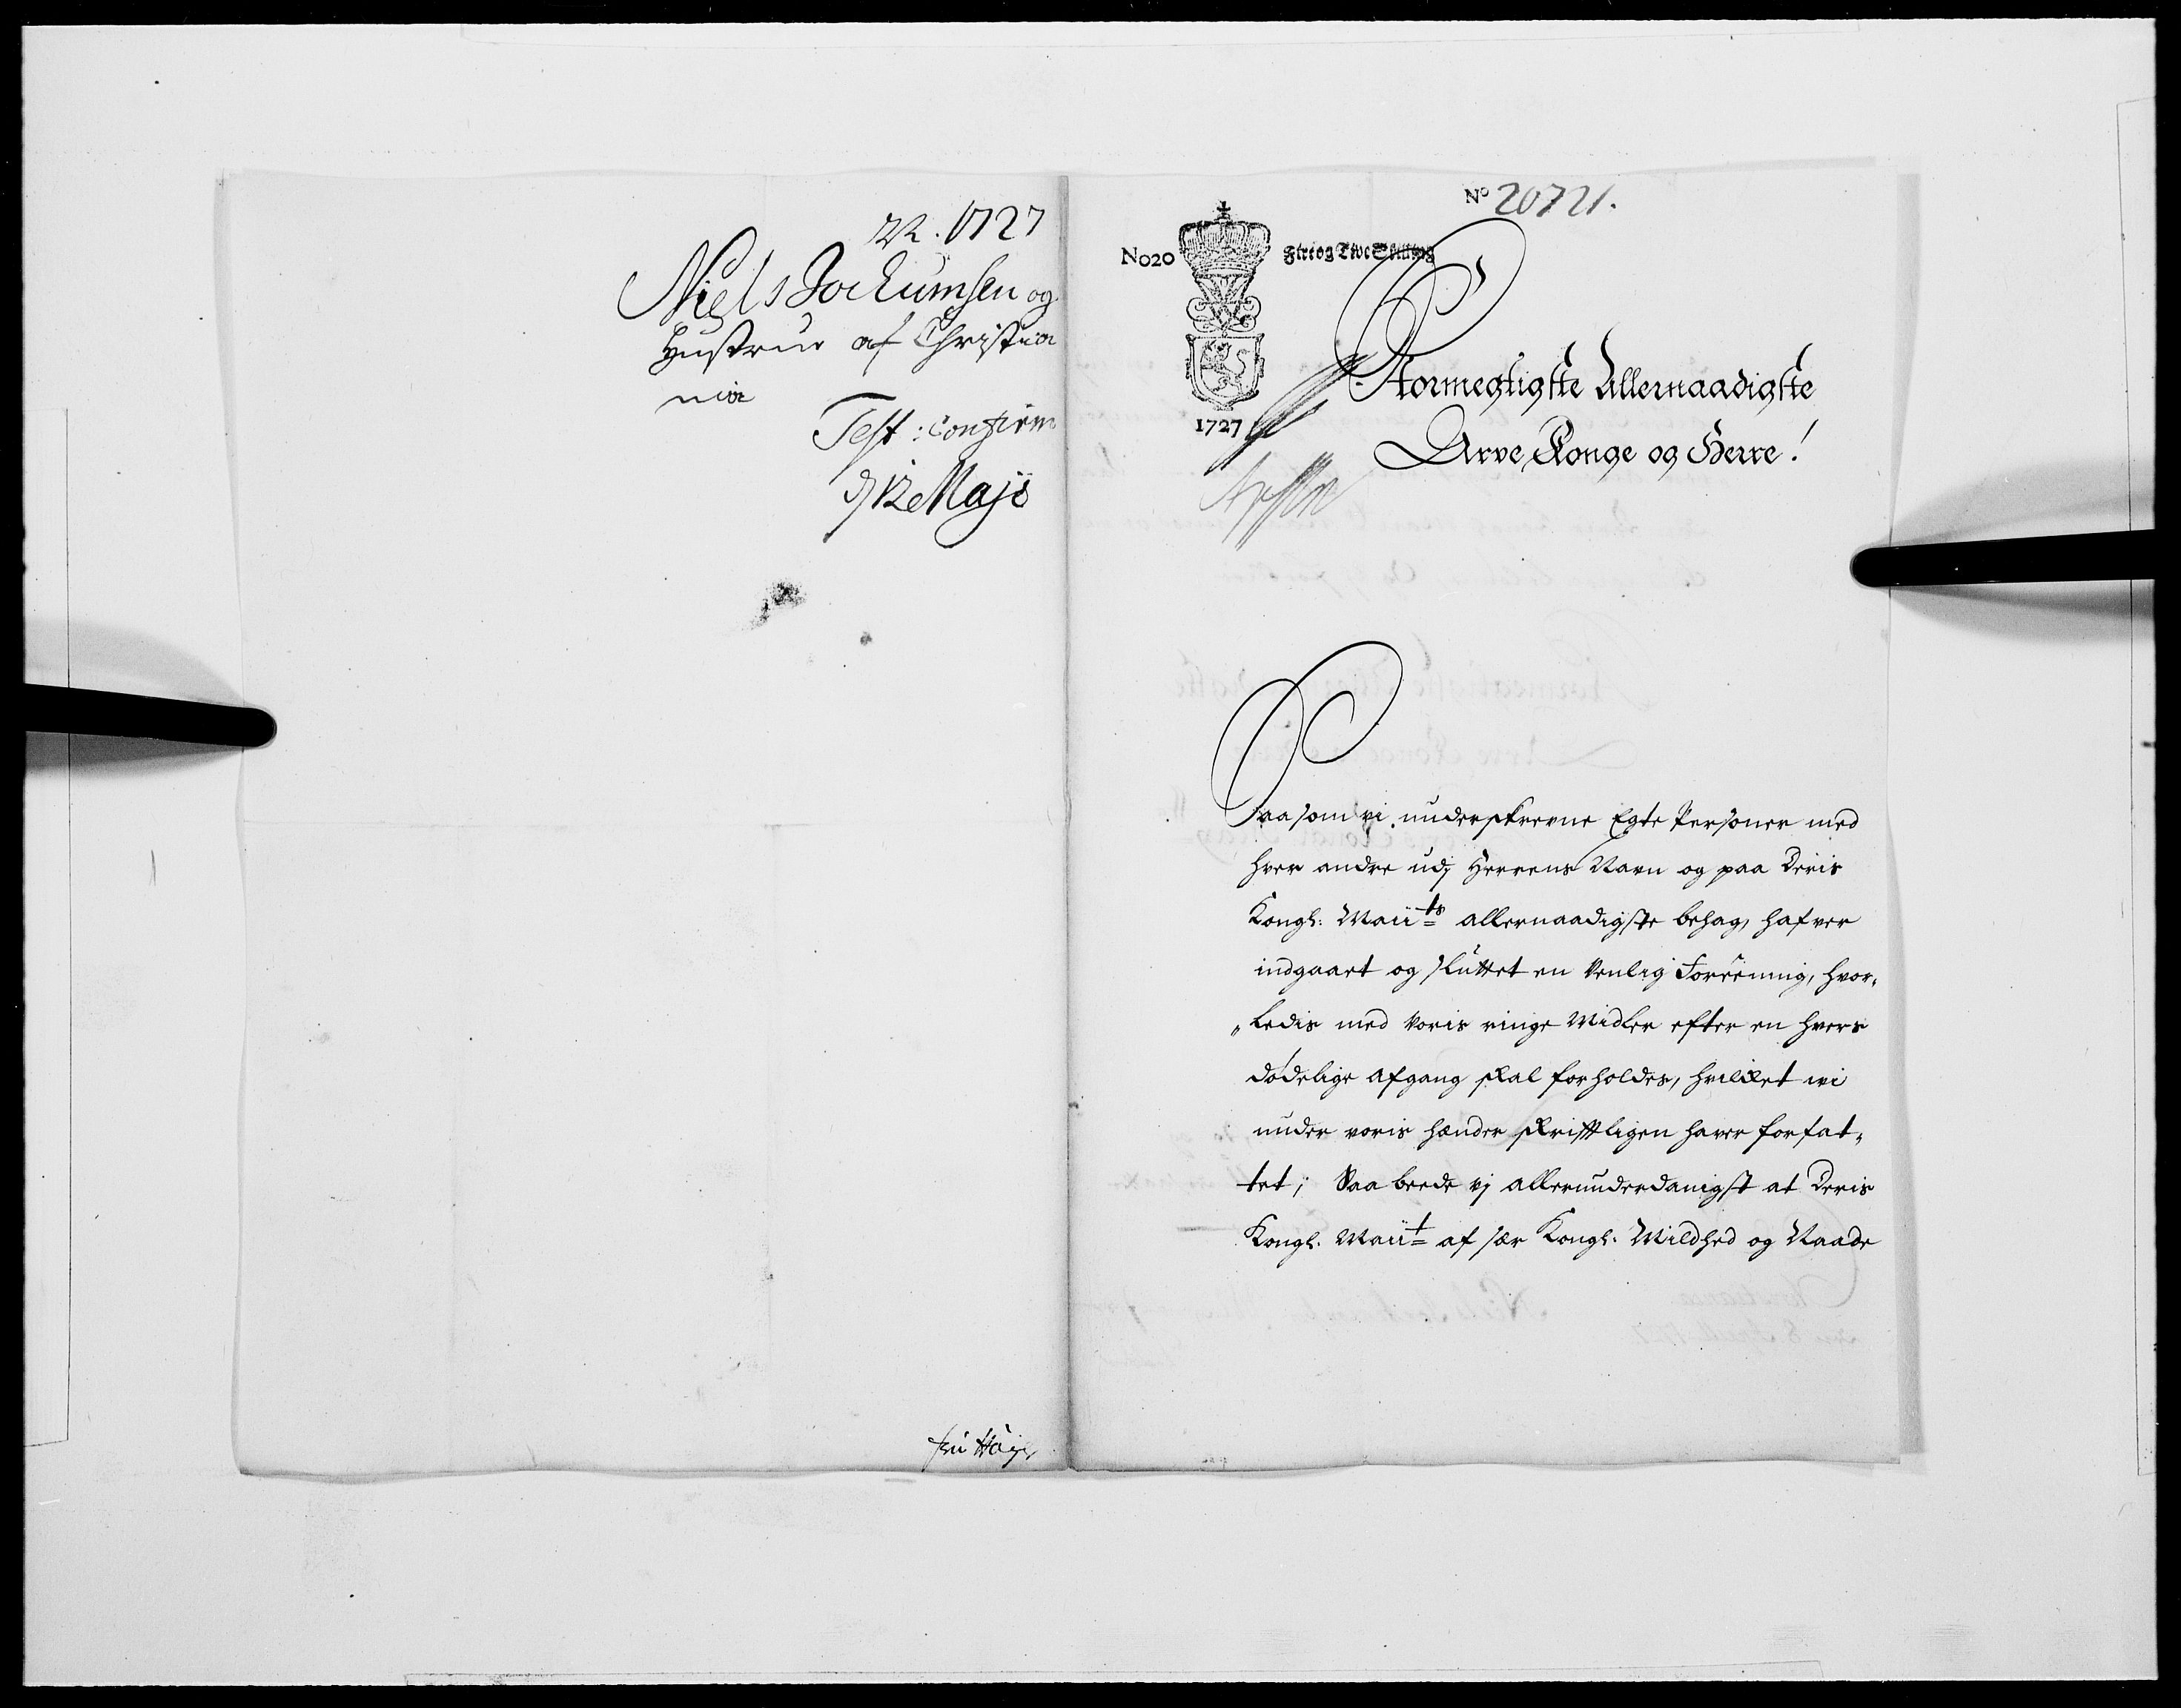 22. 1727
Niels Jochumsen og
Hustrue af Christia
nia
Test: Confirm
d 12 Maji
No 20721.
No20
Fire og Tive Skilling
1727
Stormegtigste Allernaadigste
Arve Konge og Herre!
Saasom vi underskrevne Egte Personer med
hver andre udj Herrens Navn og paa Deris
Kongl: Maiits allernaadigste behag, hafver
indgaaet og sluttet en Venlig Foreening, hvor„
„ledis med voris ringe Midler efter en hvers
dødelige afgang skal forholdes, hvilcket vi
under voris hænder skrifftligen haver forfat„
tet; Saa beede vj allerunderdanigst at Deris
Kongl. Maiit af sær Kongl: Mildhed og Naade